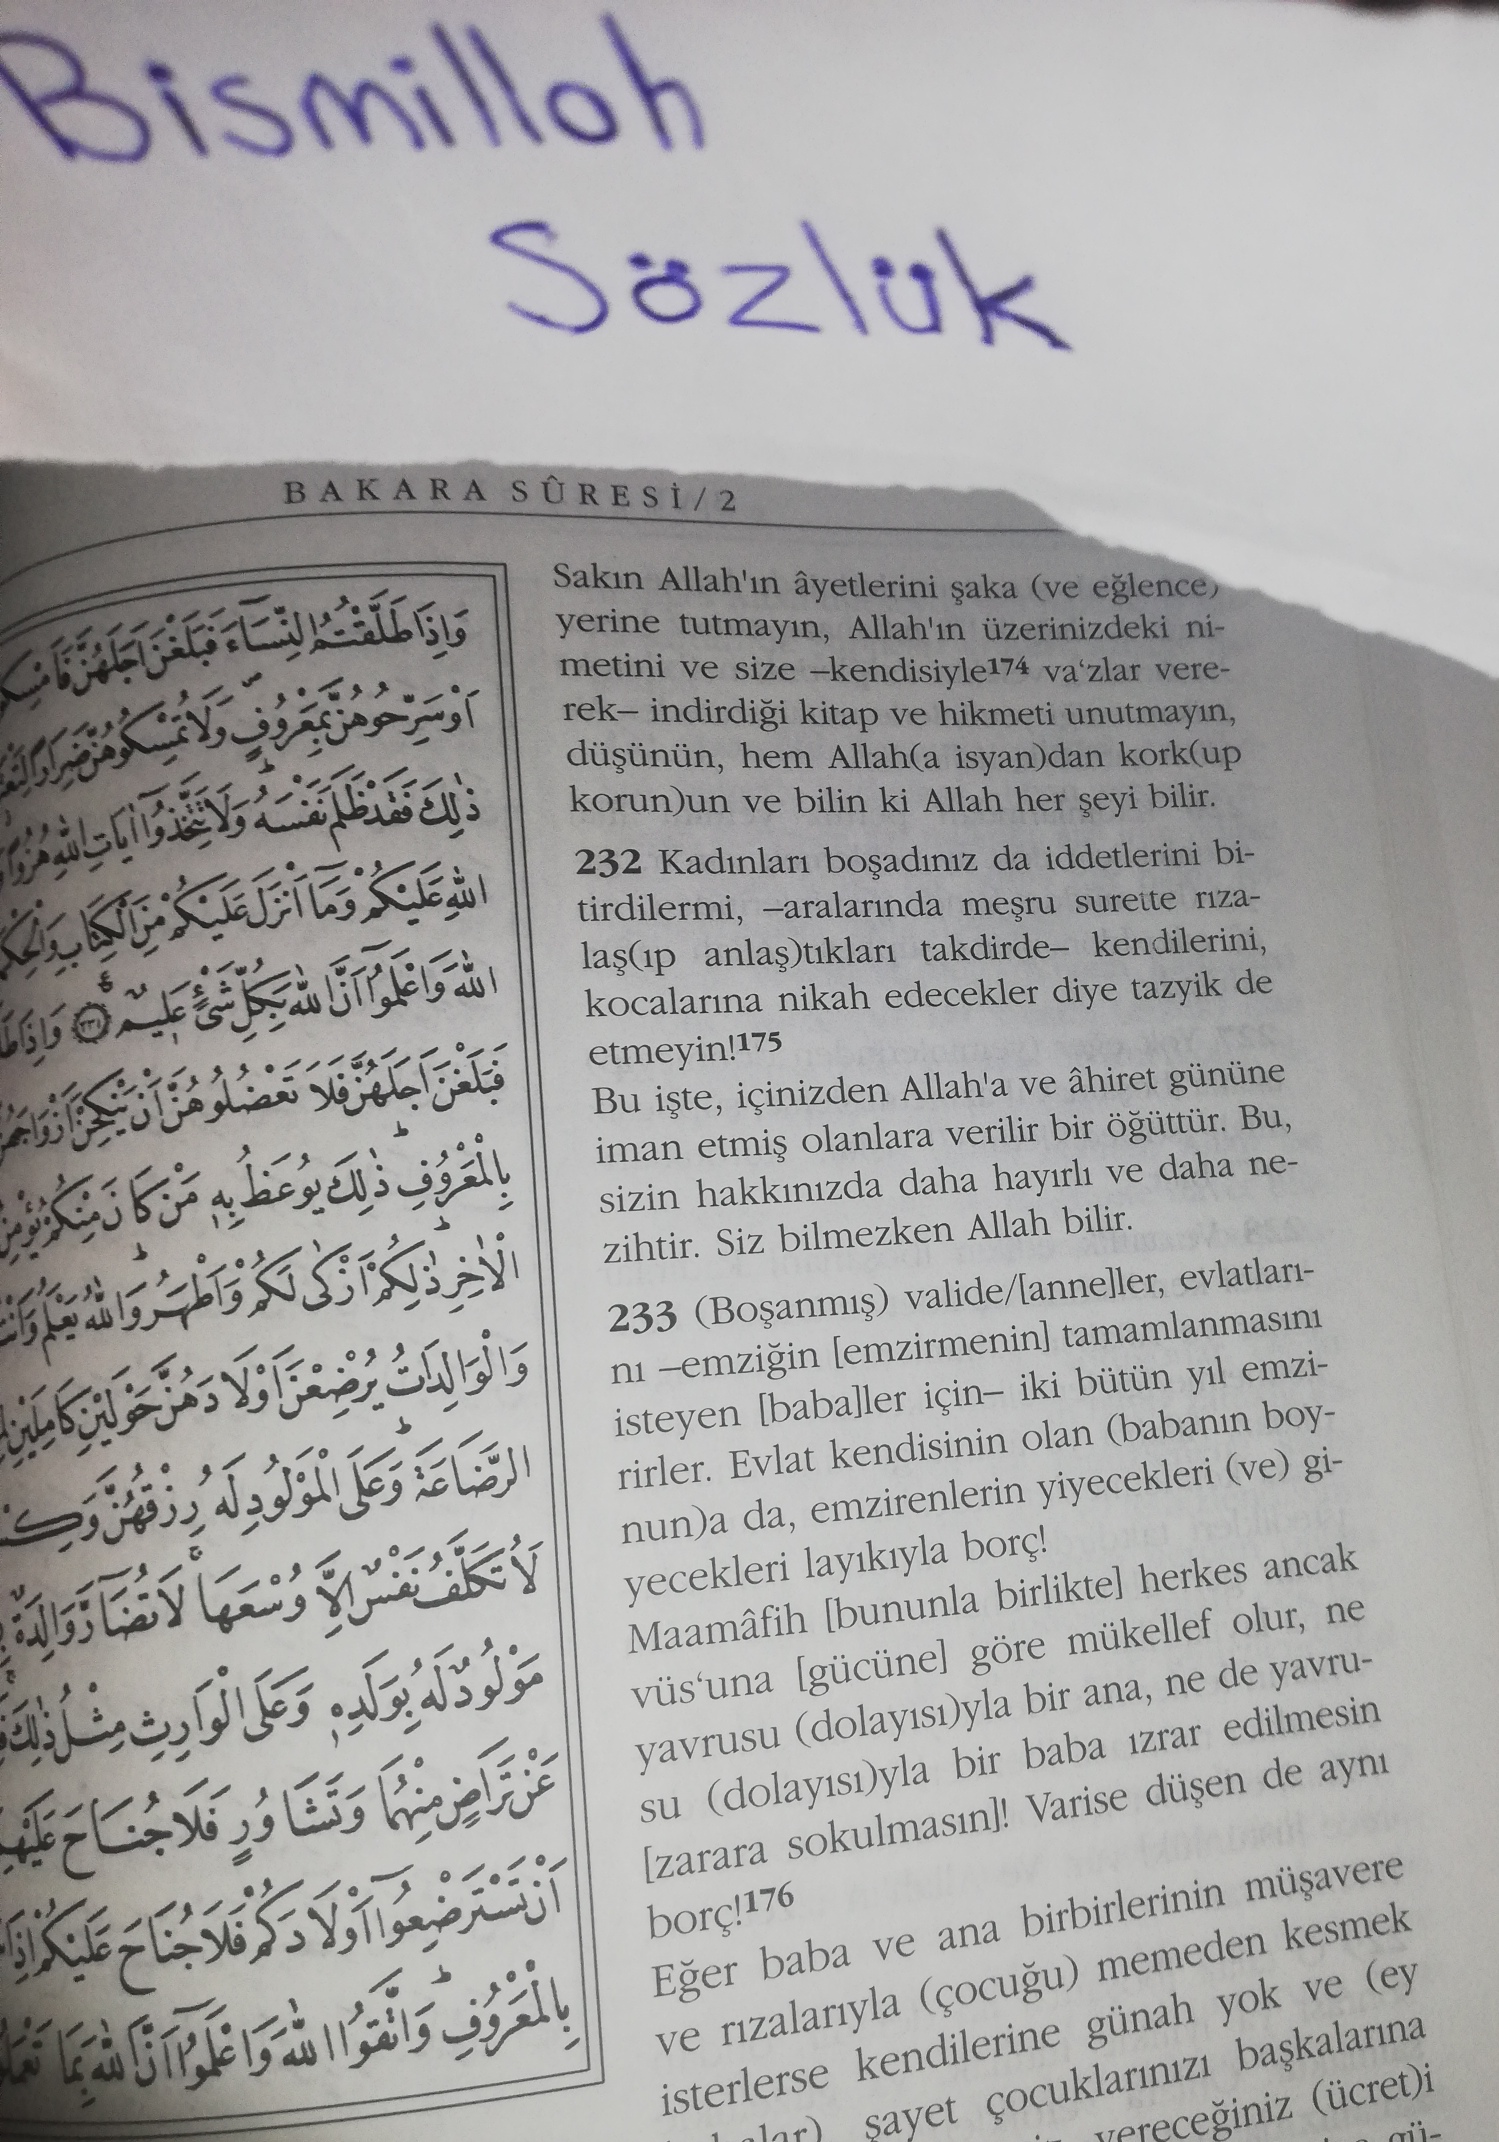 Bismilloh
Sözlük
BAKARA SÛRESİ/2
وَاِذَا طَلَّقْتُمُ النِّسَٓاءَ فَبَلَغْنَ اَجَلَهُنَّ
اَوْ سَرِّحُوهُنَّ بِمَعْرُوفٍ وَلَا تُمْسِكُوهُنَّ ضِرَارًا
ذٰلِكَ فَقَدْ ظَلَمَ نَفْسَهُ وَلَا تَتَّخِذُٓوا اٰيَاتِ اللّٰهِ هُزُوًا
اللّٰهِ عَلَيْكُمْ وَمَٓا اَنْزَلَ عَلَيْكُمْ مِنَ الْكِتَابِ
اللّٰهَ وَاعْلَمُٓوا اَنَّ اللّٰهَ بِكُلِّ شَيْءٍ عَلِيمٌ ﴿٢٣١﴾
فَبَلَغْنَ اَجَلَهُنَّ فَلَا تَعْضُلُوهُنَّ اَنْ يَنْكِحْنَ
بِالْمَعْرُوفِ ذٰلِكَ يُوعَظُ بِهِ مَنْ كَانَ مِنْكُمْ
الْاٰخِرِ ذٰلِكُمْ اَزْكٰى لَكُمْ وَاَطْهَرُ وَاللّٰهُ يَعْلَمُ
وَالْوَالِدَاتُ يُرْضِعْنَ اَوْلَادَهُنَّ حَوْلَيْنِ كَامِلَيْنِ
الرَّضَاعَةَ وَعَلَى الْمَوْلُودِ لَهُ رِزْقُهُنَّ
لَا تُكَلَّفُ نَفْسٌ اِلَّا وُسْعَهَا لَا تُضَٓارَّ وَالِدَةٌ
مَوْلُودٌ لَهُ بِوَلَدِهِ وَعَلَى الْوَارِثِ مِثْلُ ذٰلِكَ
عَنْ تَرَاضٍ مِنْهُمَا وَتَشَاوُرٍ فَلَا جُنَاحَ
اَنْ تَسْتَرْضِعُٓوا اَوْلَادَكُمْ فَلَا جُنَاحَ عَلَيْكُمْ
بِالْمَعْرُوفِ وَاتَّقُوا اللّٰهَ وَاعْلَمُٓوا اَنَّ اللّٰهَ بِمَا
Sakın Allah'ın âyetlerini şaka (ve eğlence)
yerine tutmayın, Allah'ın üzerinizdeki ni-
metini ve size –kendisiyle¹⁷⁴ va‘zlar vere-
rek– indirdiği kitap ve hikmeti unutmayın,
düşünün, hem Allah(a isyan)dan kork(up
korun)un ve bilin ki Allah her şeyi bilir.
232 Kadınları boşadınız da iddetlerini bi-
tirdilermi, –aralarında meşru surette rıza-
laş(ıp anlaş)tıkları takdirde– kendilerini,
kocalarına nikah edecekler diye tazyik de
etmeyin!¹⁷⁵
Bu işte, içinizden Allah'a ve âhiret gününe
iman etmiş olanlara verilir bir öğüttür. Bu,
sizin hakkınızda daha hayırlı ve daha ne-
zihtir. Siz bilmezken Allah bilir.
233 (Boşanmış) valide/[anne]ler, evlatları-
nı –emziğin [emzirmenin] tamamlanmasını
isteyen [baba]ler için– iki bütün yıl emzi-
rirler. Evlat kendisinin olan (babanın boy-
nun)a da, emzirenlerin yiyecekleri (ve) gi-
yecekleri layıkıyla borç!
Maamâfih [bununla birlikte] herkes ancak
vüs‘una [gücüne] göre mükellef olur, ne
yavrusu (dolayısı)yla bir ana, ne de yavru-
su (dolayısı)yla bir baba ızrar edilmesin
[zarara sokulmasın]! Varise düşen de aynı
borç!¹⁷⁶
Eğer baba ve ana birbirlerinin müşavere
ve rızalarıyla (çocuğu) memeden kesmek
isterlerse kendilerine günah yok ve (ey
şayet çocuklarınızı başkalarına
vereceğiniz (ücret)i